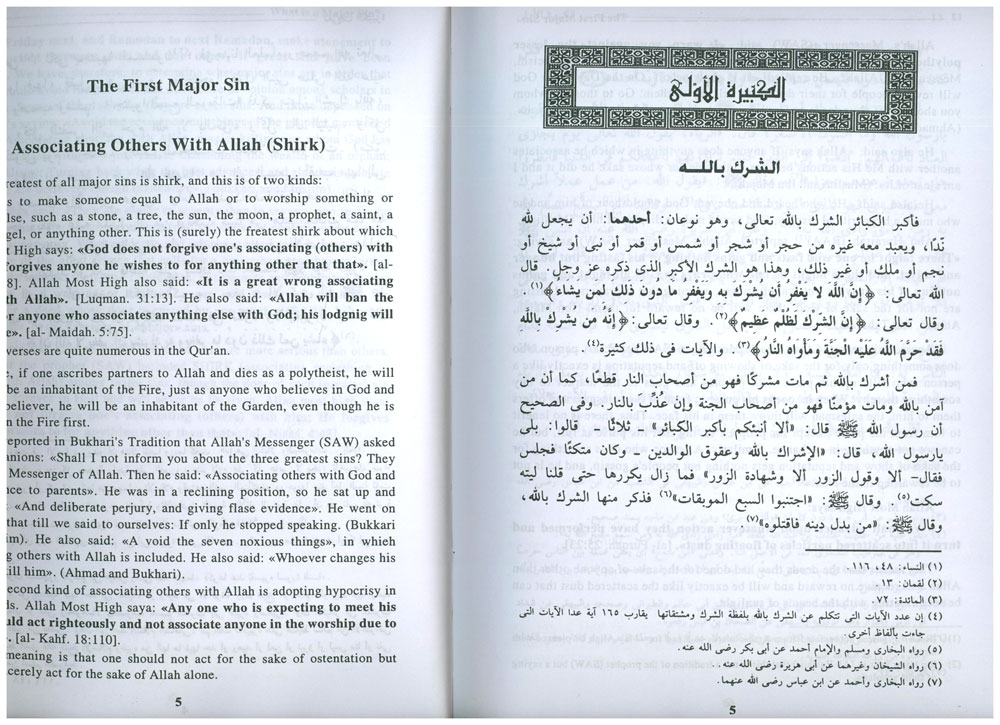 The First Major Sin
Associating Others With Allah (Shirk)
reatest of all major sins is shirk, and this is of two kinds:
s to make someone equal to Allah or to worship something or
lse, such as a stone, a tree, the sun, the moon, a prophet, a saint, a
gel, or anything other. This is (surely) the freatest shirk about which
t High says: «God does not forgive one's associating (others) with
forgives anyone he wishes to for anything other that that». [al-
8]. Allah Most High also said: «It is a great wrong associating
th Allah». [Luqman. 31:13]. He also said: «Allah will ban the
r anyone who associates anything else with God; his lodgnig will
e». [al- Maidah. 5:75].
verses are quite numerous in the Qur'an.
, if one ascribes partners to Allah and dies as a polytheist, he will
be an inhabitant of the Fire, just as anyone who believes in God and
believer, he will be an inhabitant of the Garden, even though he is
n the Fire first.
reported in Bukhari's Tradition that Allah's Messenger (SAW) asked
anions: «Shall I not inform you about the three greatest sins? They
Messenger of Allah. Then he said: «Associating others with God and
nce to parents». He was in a reclining position, so he sat up and
«And deliberate perjury, and giving flase evidence». He went on
that till we said to ourselves: If only he stopped speaking. (Bukkari
im). He also said: «A void the seven noxious things», in whieh
g others with Allah is included. He also said: «Whoever changes his
ill him». (Ahmad and Bukhari).
econd kind of associating others with Allah is adopting hypocrisy in
ds. Allah Most High saya: «Any one who is expecting to meet his
uld act righteously and not associate anyone in the worship due to
. [al- Kahf. 18:110].
meaning is that one should not act for the sake of ostentation but
cerely act for the sake of Allah alone.
5
الكبيرة الأولى
الشرك بالله
فأكبر الكبائر الشرك بالله تعالى، وهو نوعان: أحدهما: أن يجعل لله
ندًا، ويعبد معه غيره من حجر أو شجر أو شمس أو قمر أو نبى أو شيخ أو
نجم أو ملك أو غير ذلك، وهذا هو الشرك الأكبر الذى ذكره عز وجل. قال
الله تعالى: ﴿إِنَّ اللَّهَ لا يَغْفِرُ أَن يُشْرَكَ بِهِ وَيَغْفِرُ مَا دونَ ذلكَ لمَن يشاءُ﴾(١).
وقال تعالى: ﴿إِنَّ الشِّرْكَ لَظُلْمٌ عظِيمٌ﴾(٢). وقال تعالى: ﴿إِنَّهُ مَن يُشْرِكْ بِاللَّهِ
فَقَدْ حَرَّمَ اللَّهُ عَلَيْهِ الْجَنَّةَ وَمَأْوَاهُ النَّارُ﴾(٣). والآيات فى ذلك كثيرة(٤).
فمن أشرك بالله ثم مات مشركًا فهو من أصحاب النار قطعًا، كما أن من
آمن بالله ومات مؤمنًا فهو من أصحاب الجنة وإن عُذِّبَ بالنار. وفى الصحيح
أن رسول الله ﷺ قال: «ألا أنبئكم بأكبر الكبائر» ـ ثلاثًا ـ قالوا: بلى
يارسول الله، قال: «الإشراك بالله وعقوق الوالدين ـ وكان متكئًا فجلس
فقال- ألا وقول الزور ألا وشهادة الزور» فما زال يكررها حتى قلنا ليته
سكت(٥). وقال ﷺ: «اجتنبوا السبع الموبقات»(٦) فذكر منها الشرك بالله،
وقال ﷺ: «من بدل دينه فاقتلوه»(٧).
(١) النساء: ٤٨، ١١٦.
(٢) لقمان: ١٣.
(٣) المائدة: ٧٢.
(٤) إن عدد الآيات التى تتكلم عن الشرك بلفظة الشرك ومشتقاتها يقارب ١٦٥ آية عدا الآيات التى
جاءت بألفاظ أخرى.
(٥) رواه البخارى ومسلم والإمام أحمد عن أبى بكر رضى الله عنه.
(٦) رواه الشيخان وغيرهما عن أبى هريرة رضى الله عنه.
(٧) رواه البخارى وأحمد عن ابن عباس رضى الله عنهما.
5